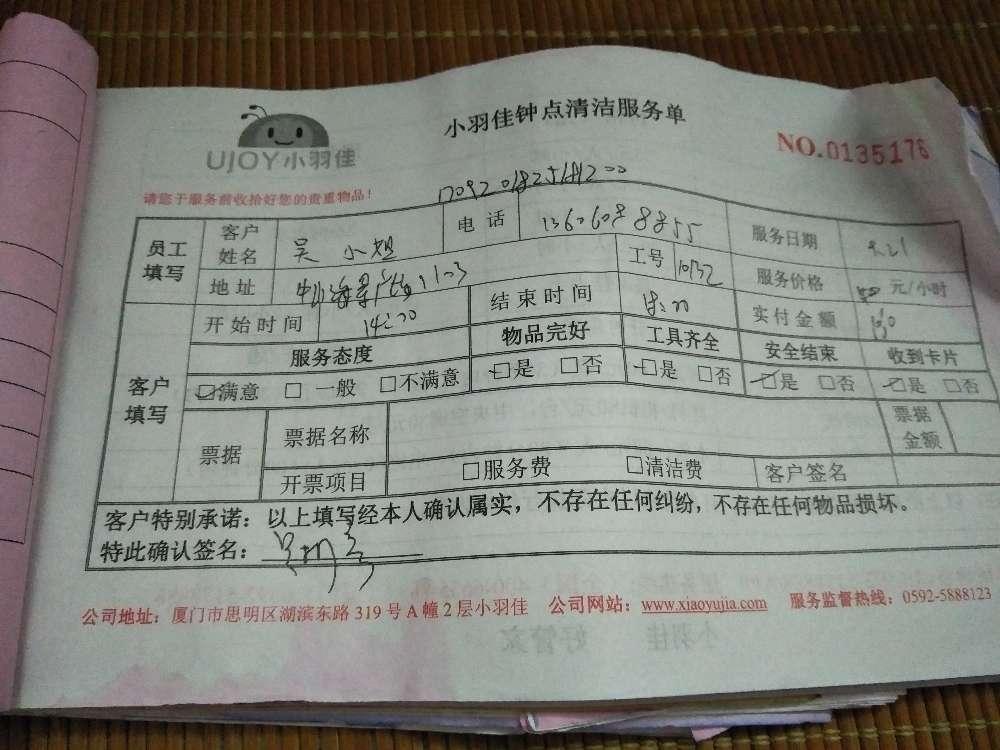 小羽佳钟点清洁服务单
UJOY小羽佳
NO.0135176
请您于服务前收拾好您的贵重物品！
员工填写 客户姓名 吴小姐 电话 13606088855 服务日期 9.21
地址 1103 工号 10132 服务价格 元/小时
客户填写 开始时间 14:00 结束时间 18:00 实付金额
服务态度 物品完好 工具齐全 安全结束 收到卡片
满意 一般 不满意 是 否 是 否 是 否 是 否
票据 票据名称 票据金额
开票项目 服务费 清洁费 客户签名
客户特别承诺：以上填写经本人确认属实，不存在任何纠纷，不存在任何物品损坏。
特此确认签名：
公司地址：厦门市思明区湖滨东路319号A幢2层小羽佳 公司网站：www.xiaoyujia.com 服务监督热线：0592-5888123